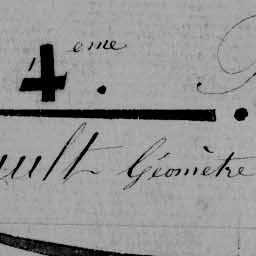 4eme.
ult Géomètre